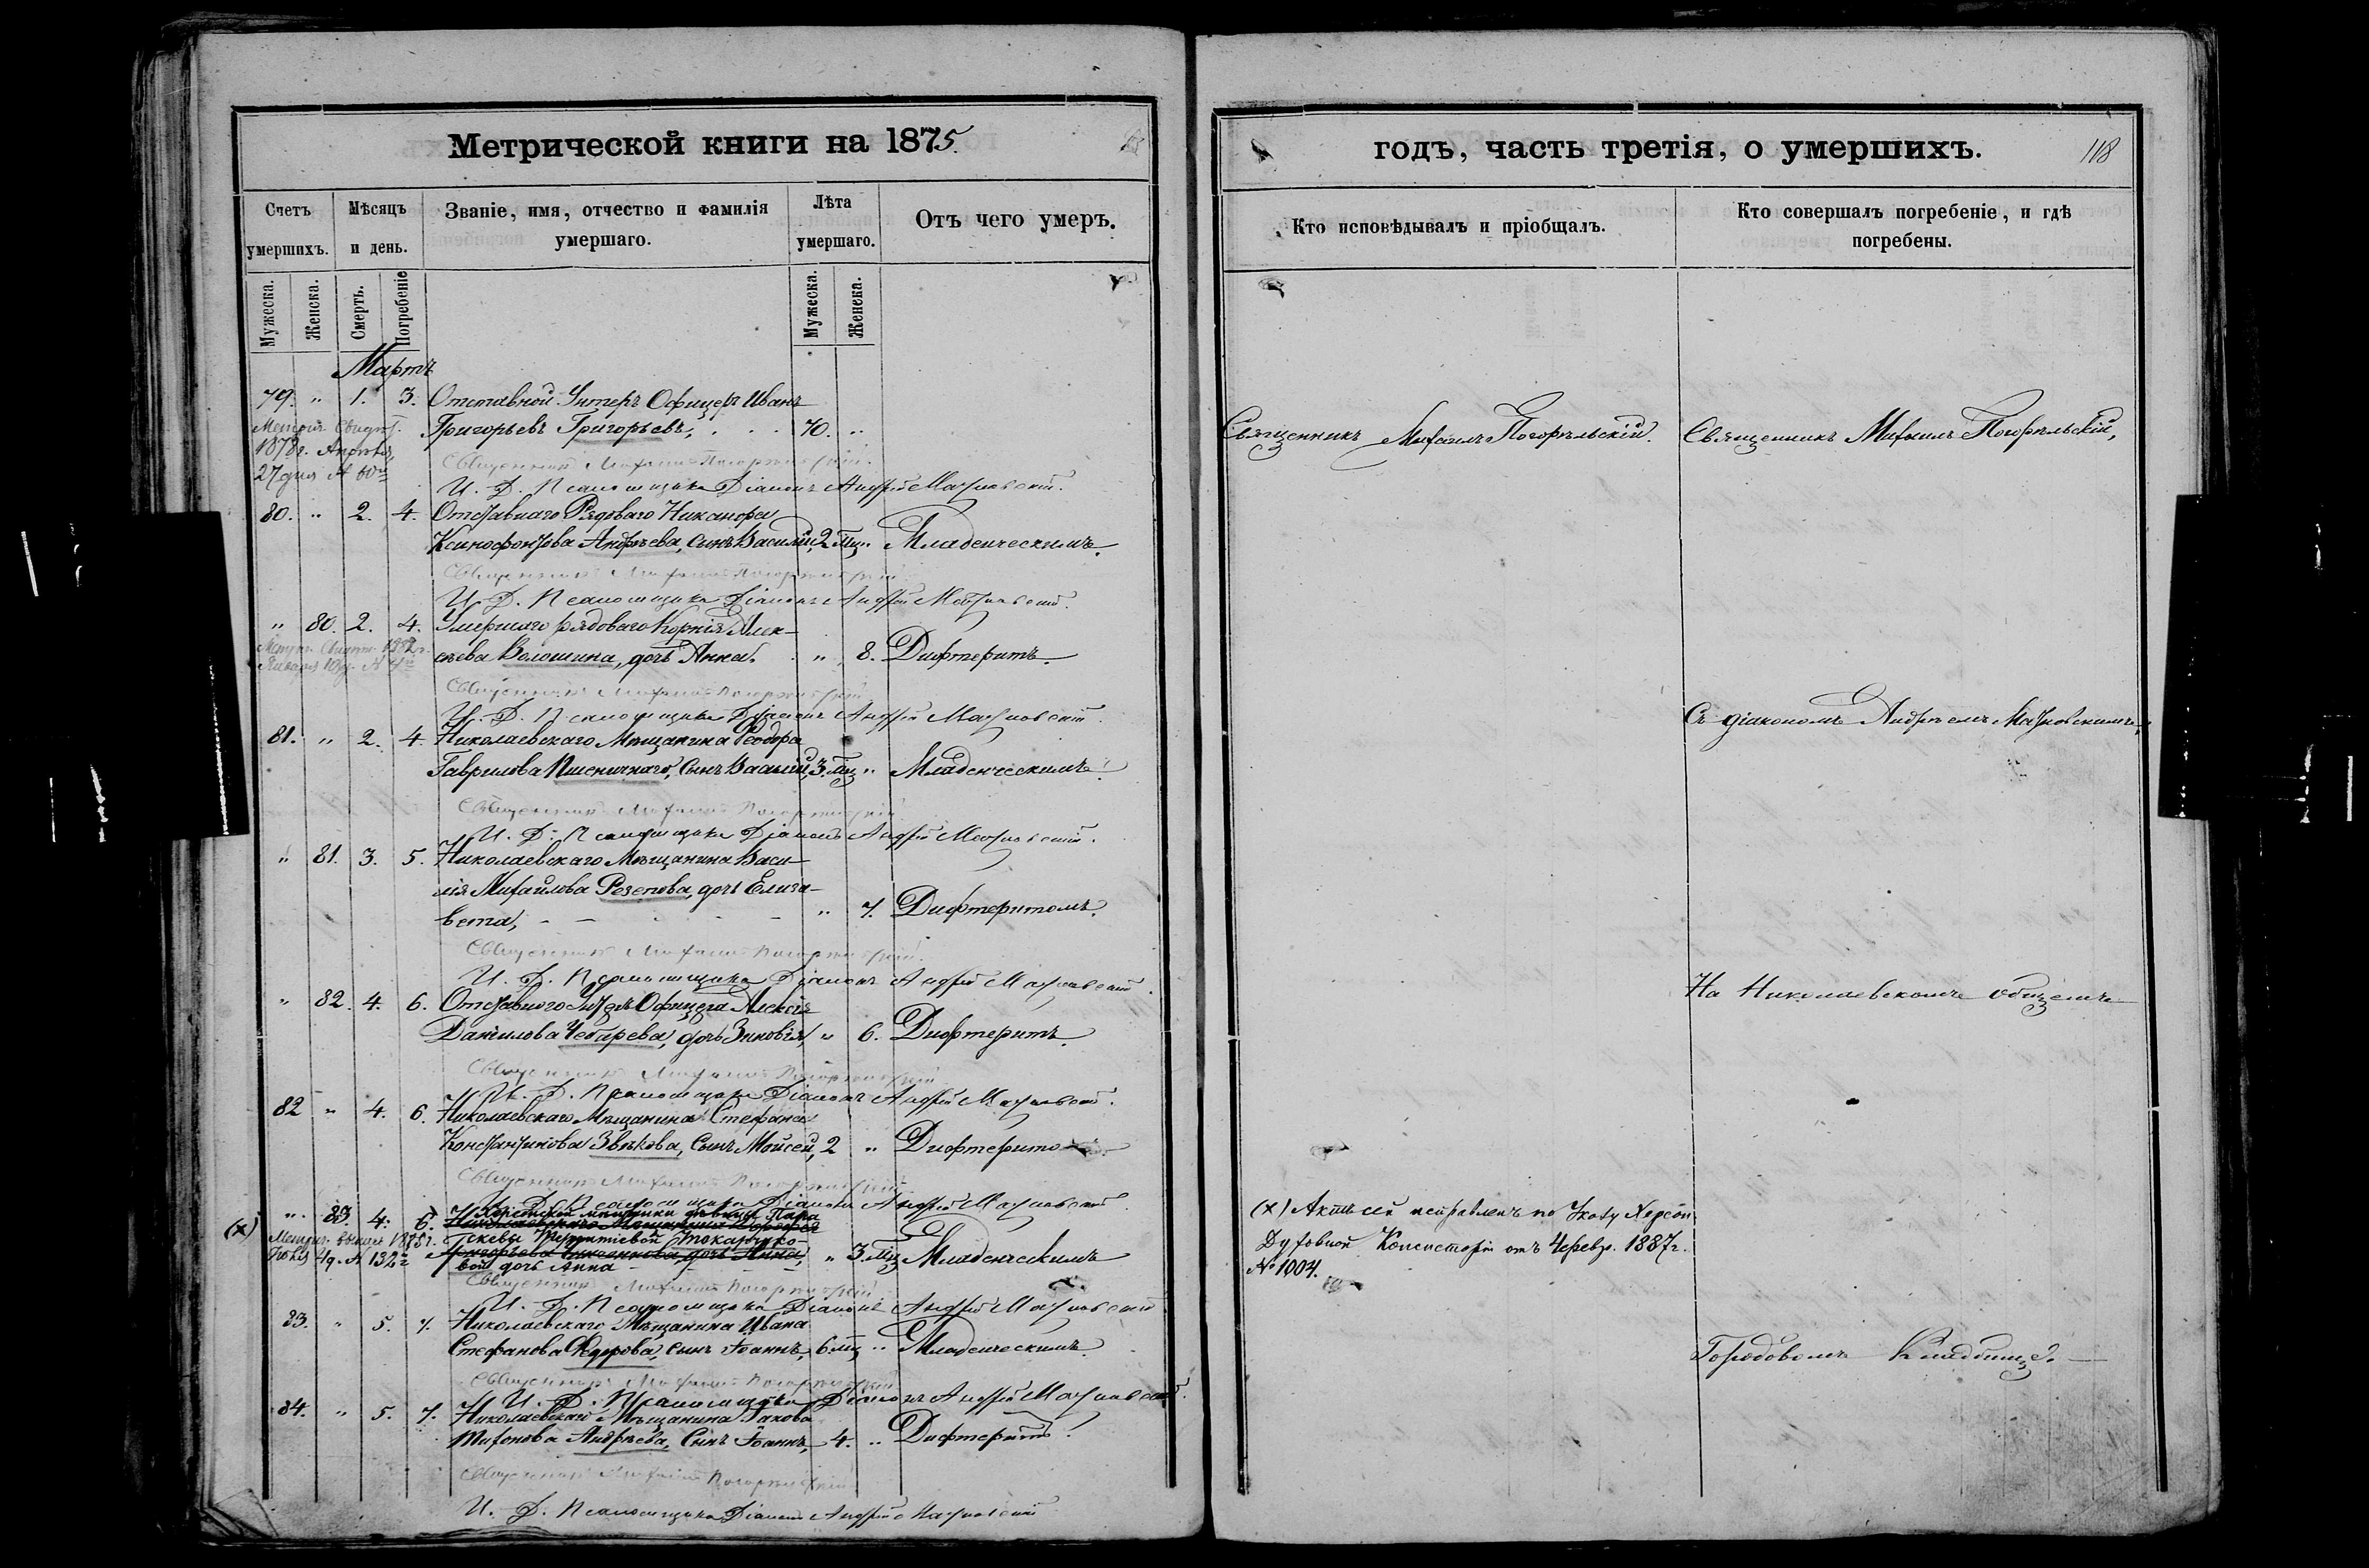 Метрической книги на 1875.
Счетъ умершихъ.
Мѣсяцъ и день.
Званіе, имя, отчество и фамилія умершаго.
Лѣта умершаго.
Отъ чего умеръ.
Мужеска.
Женска.
Смерть.
Погребеніе
Мужеска.
Женска.
Мартъ
79. " 1. 3. Отставной Унтеръ Офицеръ Иванъ
Григорьевъ Григорьевъ, 70. "
Метрич. Свидѣт.
1878г. Апрѣля,
27 дня №
Священникъ Михаилъ Погорѣльскій.
И. Д. Псаломщика Діаконъ Андрей
80. " 2. 4. Отставнаго Рядоваго Никанора
Ксинофонтова Андрѣева, сынъ Василій, 2 мц. " Младенческимъ.
Священникъ Михаилъ Погорѣльскій
И. Д. Псаломщика Діаконъ Андрей
" 80. 2. 4. Умершаго рядоваго Корнія Алек-
сѣева Волошина, дочь Анна. " 8. Дифтеритъ.
Священникъ Михаилъ Погорѣльскій
И. Д. Псаломщика Діаконъ Андрей
81. " 2. 4. Николаевскаго Мѣщанина Феодора
Гаврилова Пшеничнаго, сынъ Василій, 3. мц " Младенческимъ.
Священникъ Михаилъ Погорѣльскій
И. Д. Псаломщика Діаконъ Андрей
" 81. 3. 5. Николаевскаго Мѣщанина Васи-
лія Михайлова дочь Елиза-
вета, " 7. Дифтеритомъ.
Священникъ Михаилъ Погорѣльскій.
И. Д. Псаломщика Діаконъ Андрей
" 82. 4. 6. Отставного Унтеръ Офицера Алексія
Данилова Чебарева, дочь Зиновія, " 6. Дифтеритъ.
Священникъ Михаилъ Погорѣльскій
И. Д. Псаломщика Діаконъ Андрей
82 " 4. 6. Николаевскаго Мѣщанина Стефана
Константинова Звѣкова, сынъ Моисей, 2 " Дифтерито
Священникъ Михаилъ Погорѣльскій
И. Д. Псаломщика Діаконъ Андрей
(х) " 83. 4. 6. мѣщанки дѣвицы Пара
скевы
вой дочь Анна " 3. мц Младенческимъ
Священникъ Михаилъ Погорѣльскій
И. Д. Псаломщика Діаконъ Андрей
83. " 5. 7. Николаевскаго Мѣщанина Ивана
Стефанова Федорова, сынъ Іоаннъ, 6. мц " Младенческимъ.
Священникъ Михаилъ Погорѣльскій
И. Д. Псаломщика Діаконъ Андрей
84. " 5. 7. Николаевскаго Мѣщанина Іакова
Тихонова Андрѣева, Сынъ Іоаннъ, 4. " Дифтеритъ.
Священникъ Михаилъ Погорѣльскій
И. Д. Псаломщика Діаконъ Андрей
годъ, часть третія, о умершихъ. 118
Кто исповѣдывалъ и пріобщалъ.
Кто совершалъ погребеніе, и гдѣ погребены.
Священникъ Михаилъ Погорѣльскій.
Священникъ Михаилъ Погорѣльскій,
Съ діакономъ Андреемъ
На Николаевскомъ общемъ
(х) Актъ сей исправленъ по Указу Херсон.
Духовной Консисторіи отъ 4 февр. 1887г.
№ 1004.
Городовомъ Кладбище.